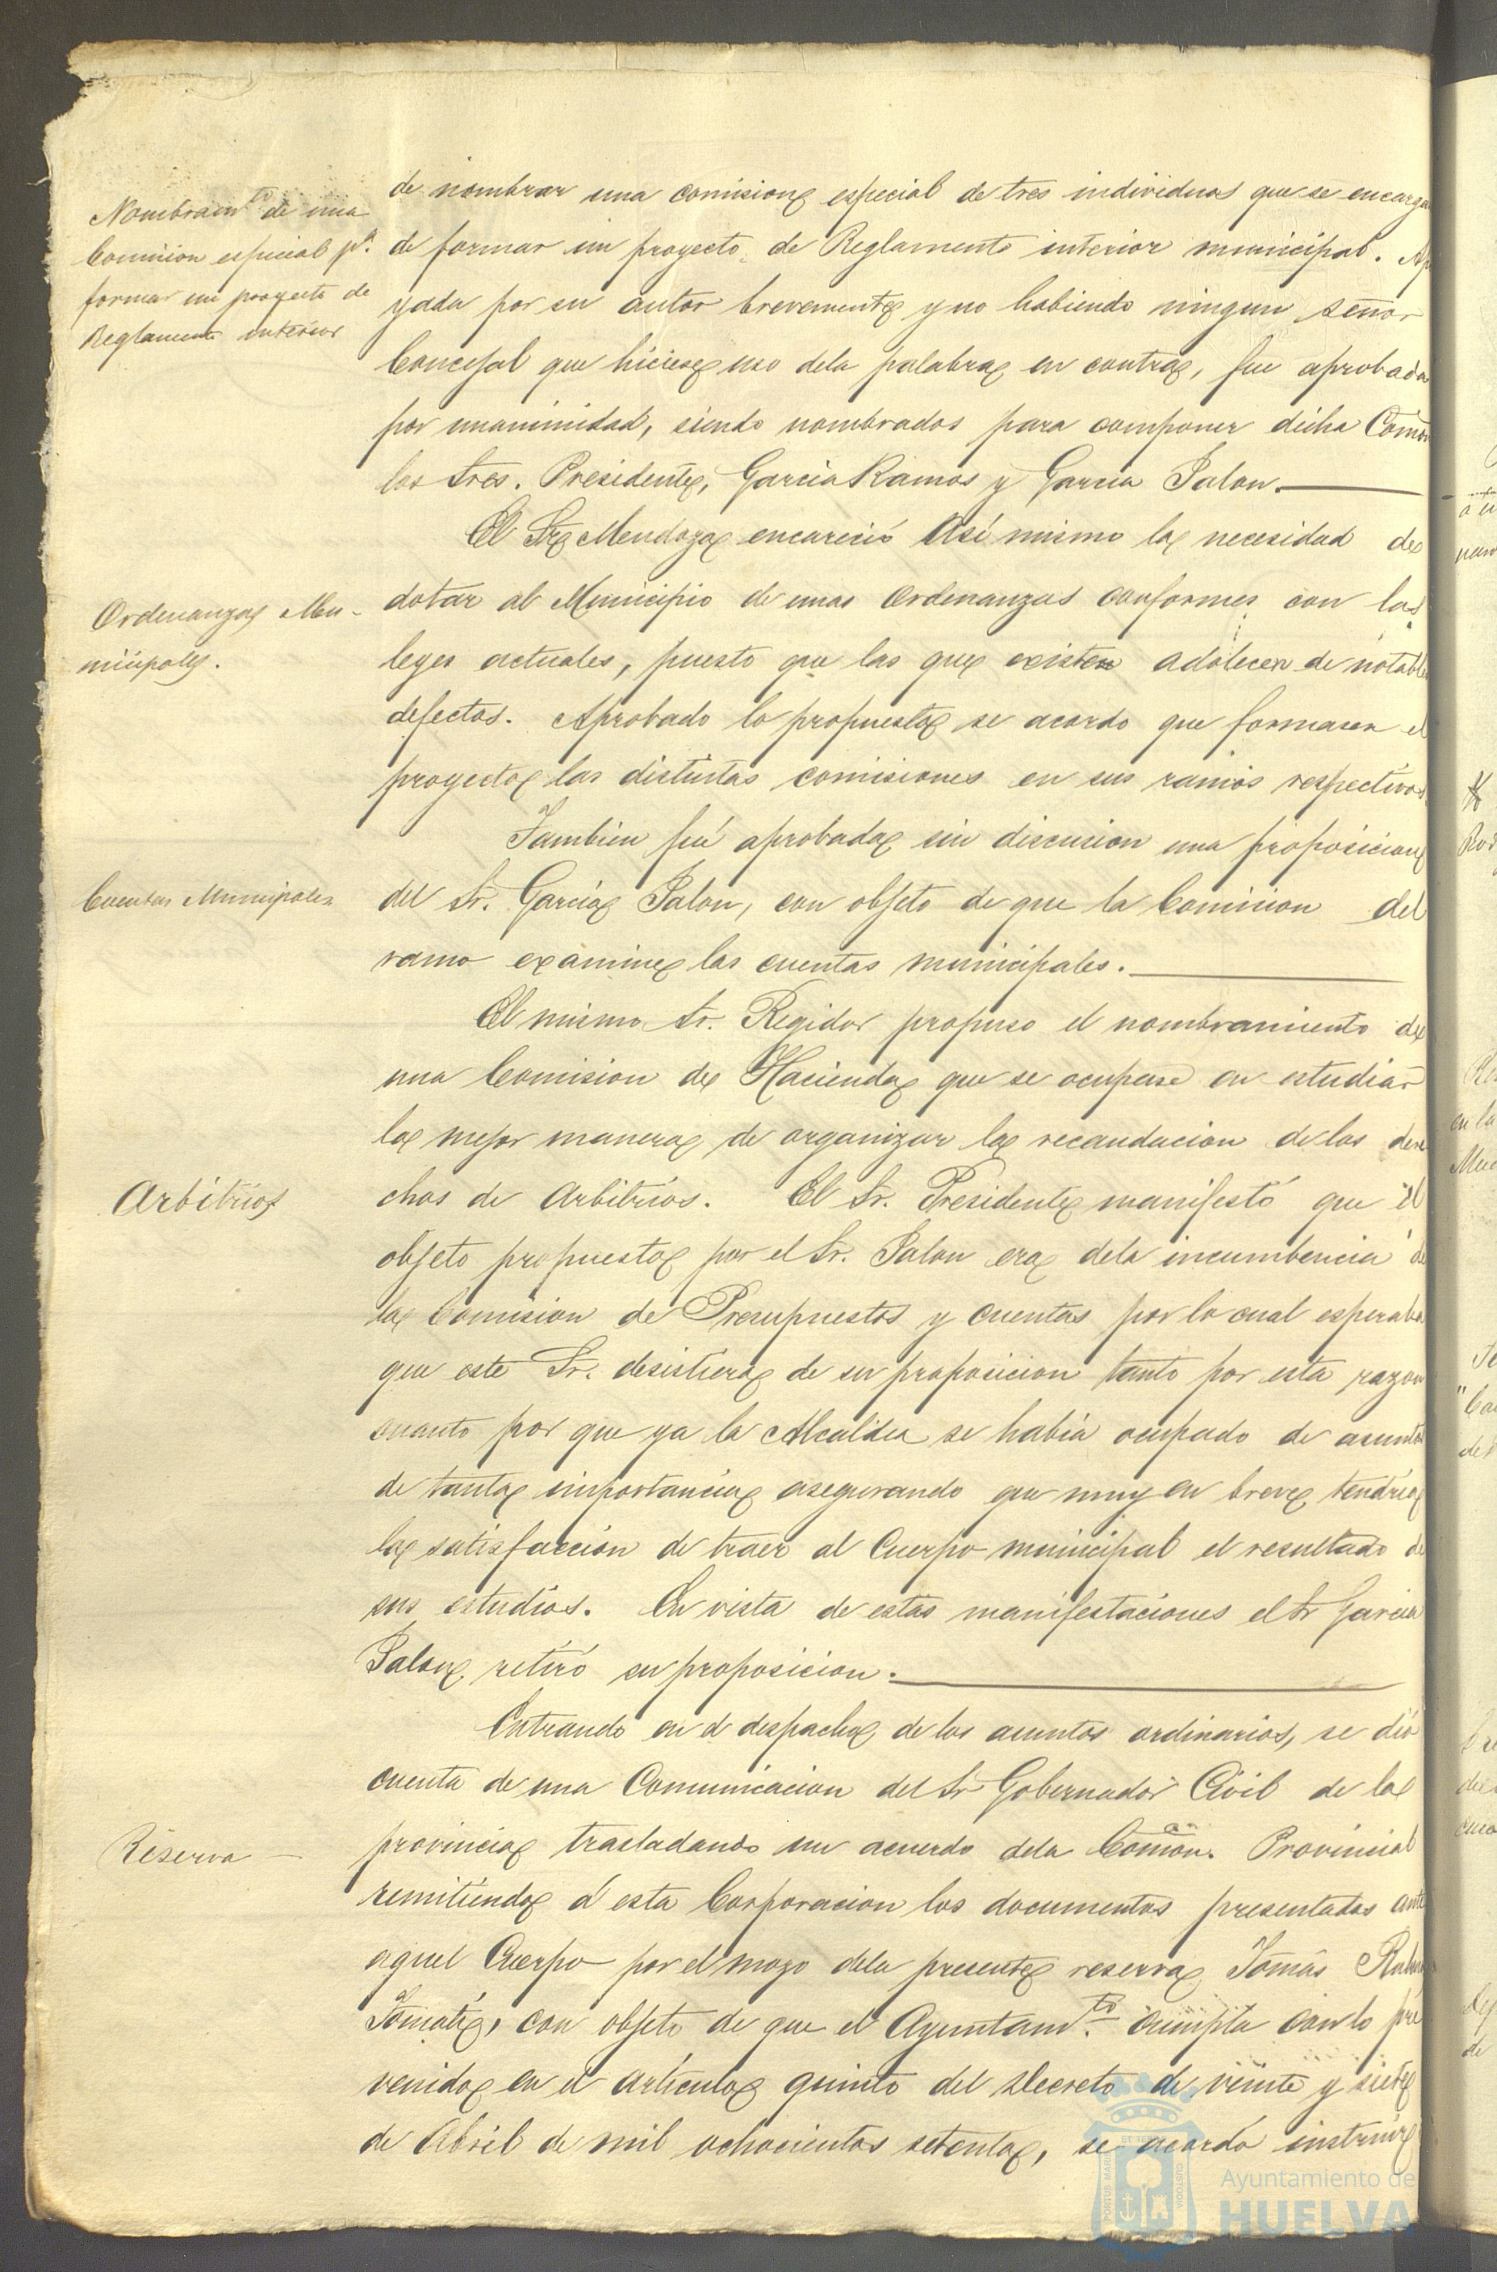 Nombram.to de una
Comision especial p.a
formar un proyecto de
Reglamento interior
de nombrar una comision especial de tres individuos que se encargue
de formar un proyecto de Reglamento interior municipal. Apo
yada por su autor brevemente y no habiendo ningun señor
Concejal que hiciese uso dela palabra en contra, fue aprobada
por unanimidad, siendo nombrados para componer dicha Comon
los Sres. Presidente, Garcia Ramos y Garcia Jalon.
El Sr Mendoza encareció Asi mismo la necesidad de
Ordenanzas Mu-
nicipales.
dotar al Municipio de unas Ordenanzas conformes con las
leyes actuales, puesto que las que existen adolecen de notables
defectos. Aprobado lo propuesto se acordo que formasen el
proyecto las distintas comisiones en sus ramos respectivos
Tambien fué aprobada sin discusion una proposicion
Cuentas Municipales
del Sr. Garcia Jalon, con objeto de que la Comision del
ramo examine las cuentas municipales.
El mismo Sr. Regidor propuso el nombramiento de
una Comision de Hacienda que se ocupase en estudiar
la mejor manera de organizar la recaudacion de los dere
Arbitrios
chos de Arbitrios. El Sr. Presidente manifestó que el
objeto propuesto por el Sr. Jalon era dela incumbencia de
la Comision de Presupuestos y cuentas por lo cual esperaba
que este Sr. desistiera de su proposicion tanto por esta razon
cuanto por que ya la Alcaldia se habia ocupado de asunto
de tanta importancia asegurando que muy en breve tendria
la satisfaccion de traer al Cuerpo municipal el resultado de
sus estudios. En vista de estas manifestaciones el Sr Garcia
Jalon retiró su proposicion.
Entrando en el despacho de los asuntos ordinarios, se dió
cuenta de una Comunicacion del Sr Gobernador Civil de la
Reserva
provincia trasladando un acuerdo dela Comon. Provincial
remitiendo á esta Corporacion los documentos presentados ante
aquel Cuerpo por el mozo dela presente reserva Tomás
con objeto de que el Ayuntam.to cumpla con lo pre
venido en el articulo quinto del Decreto de veinte y siete
de Abril de mil ochocientos setenta, se acordó instruir
Ayuntamiento de
HUELVA